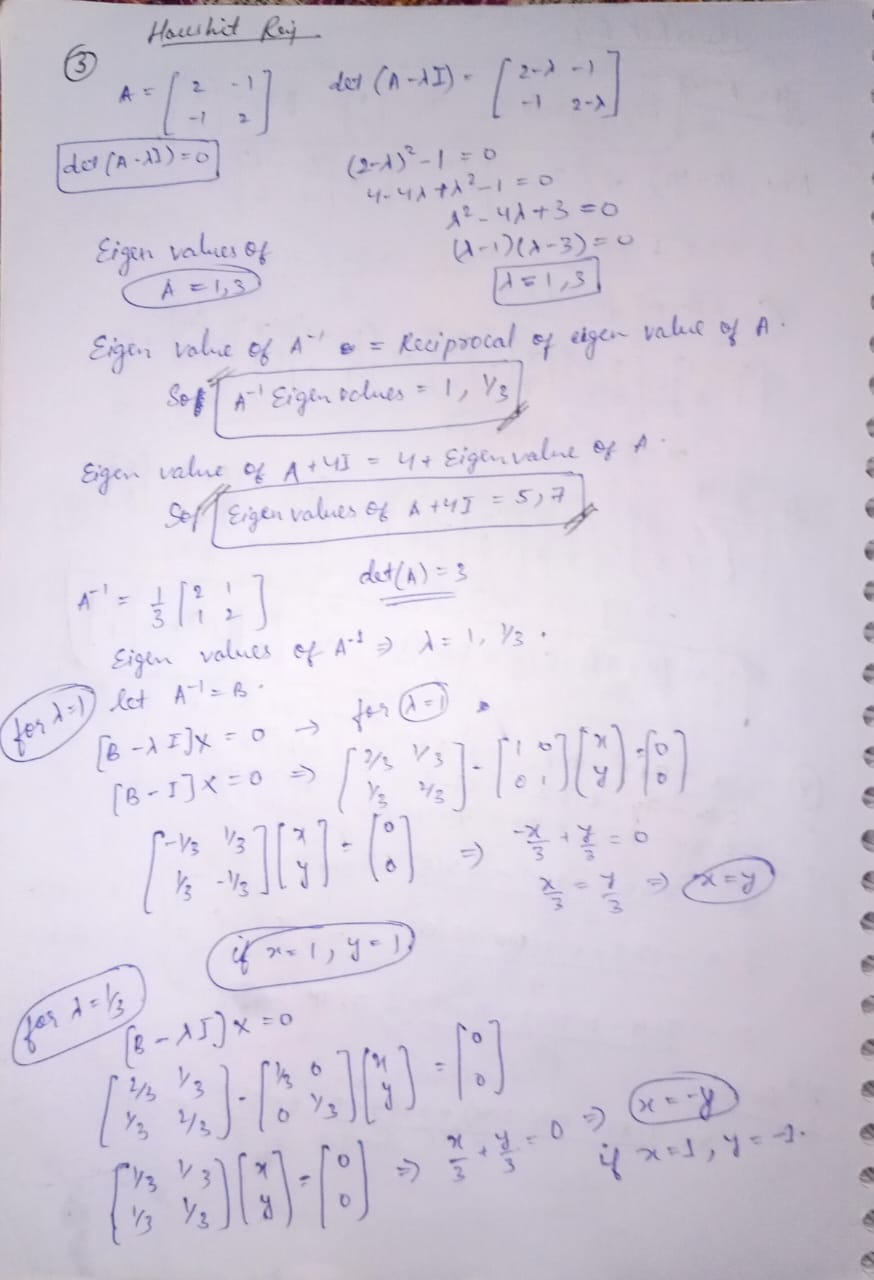 ③
A = [2 -1; -1 2] det (A-λI) = [2-λ -1; -1 2-λ]
det (A-λI) = 0
(2-λ)² - 1 = 0
4-4λ+λ²-1 = 0
λ²-4λ+3 = 0
(λ-1)(λ-3) = 0
λ = 1,3
Eigen values of
A = 1,3
Eigen value of A⁻¹ = Reciprocal of eigen value of A.
So A⁻¹ Eigen values = 1, 1/3
Eigen value of A+4I = 4+ Eigen value of A.
So Eigen values of A+4I = 5,7
A⁻¹ = 1/3 [2 1; 1 2] det(A) = 3
Eigen values of A⁻¹ ⇒ λ = 1, 1/3.
for λ=1 let A⁻¹ = B.
[B-λI]X = 0 → for λ=1
[B-I]X = 0 ⇒ [2/3 1/3; 1/3 2/3] - [1 0; 0 1][x; y] = [0; 0]
[-1/3 1/3; 1/3 -1/3][x; y] = [0; 0] ⇒ -x/3 + y/3 = 0
x/3 = y/3 ⇒ x=y
if x=1, y=1
for λ=1/3
[B-λI]X = 0
[2/3 1/3; 1/3 2/3] - [1/3 0; 0 1/3][x; y] = [0; 0]
[1/3 1/3; 1/3 1/3][x; y] = [0; 0] ⇒ x/3 + y/3 = 0 ⇒ x=-y
if x=1, y=-1.